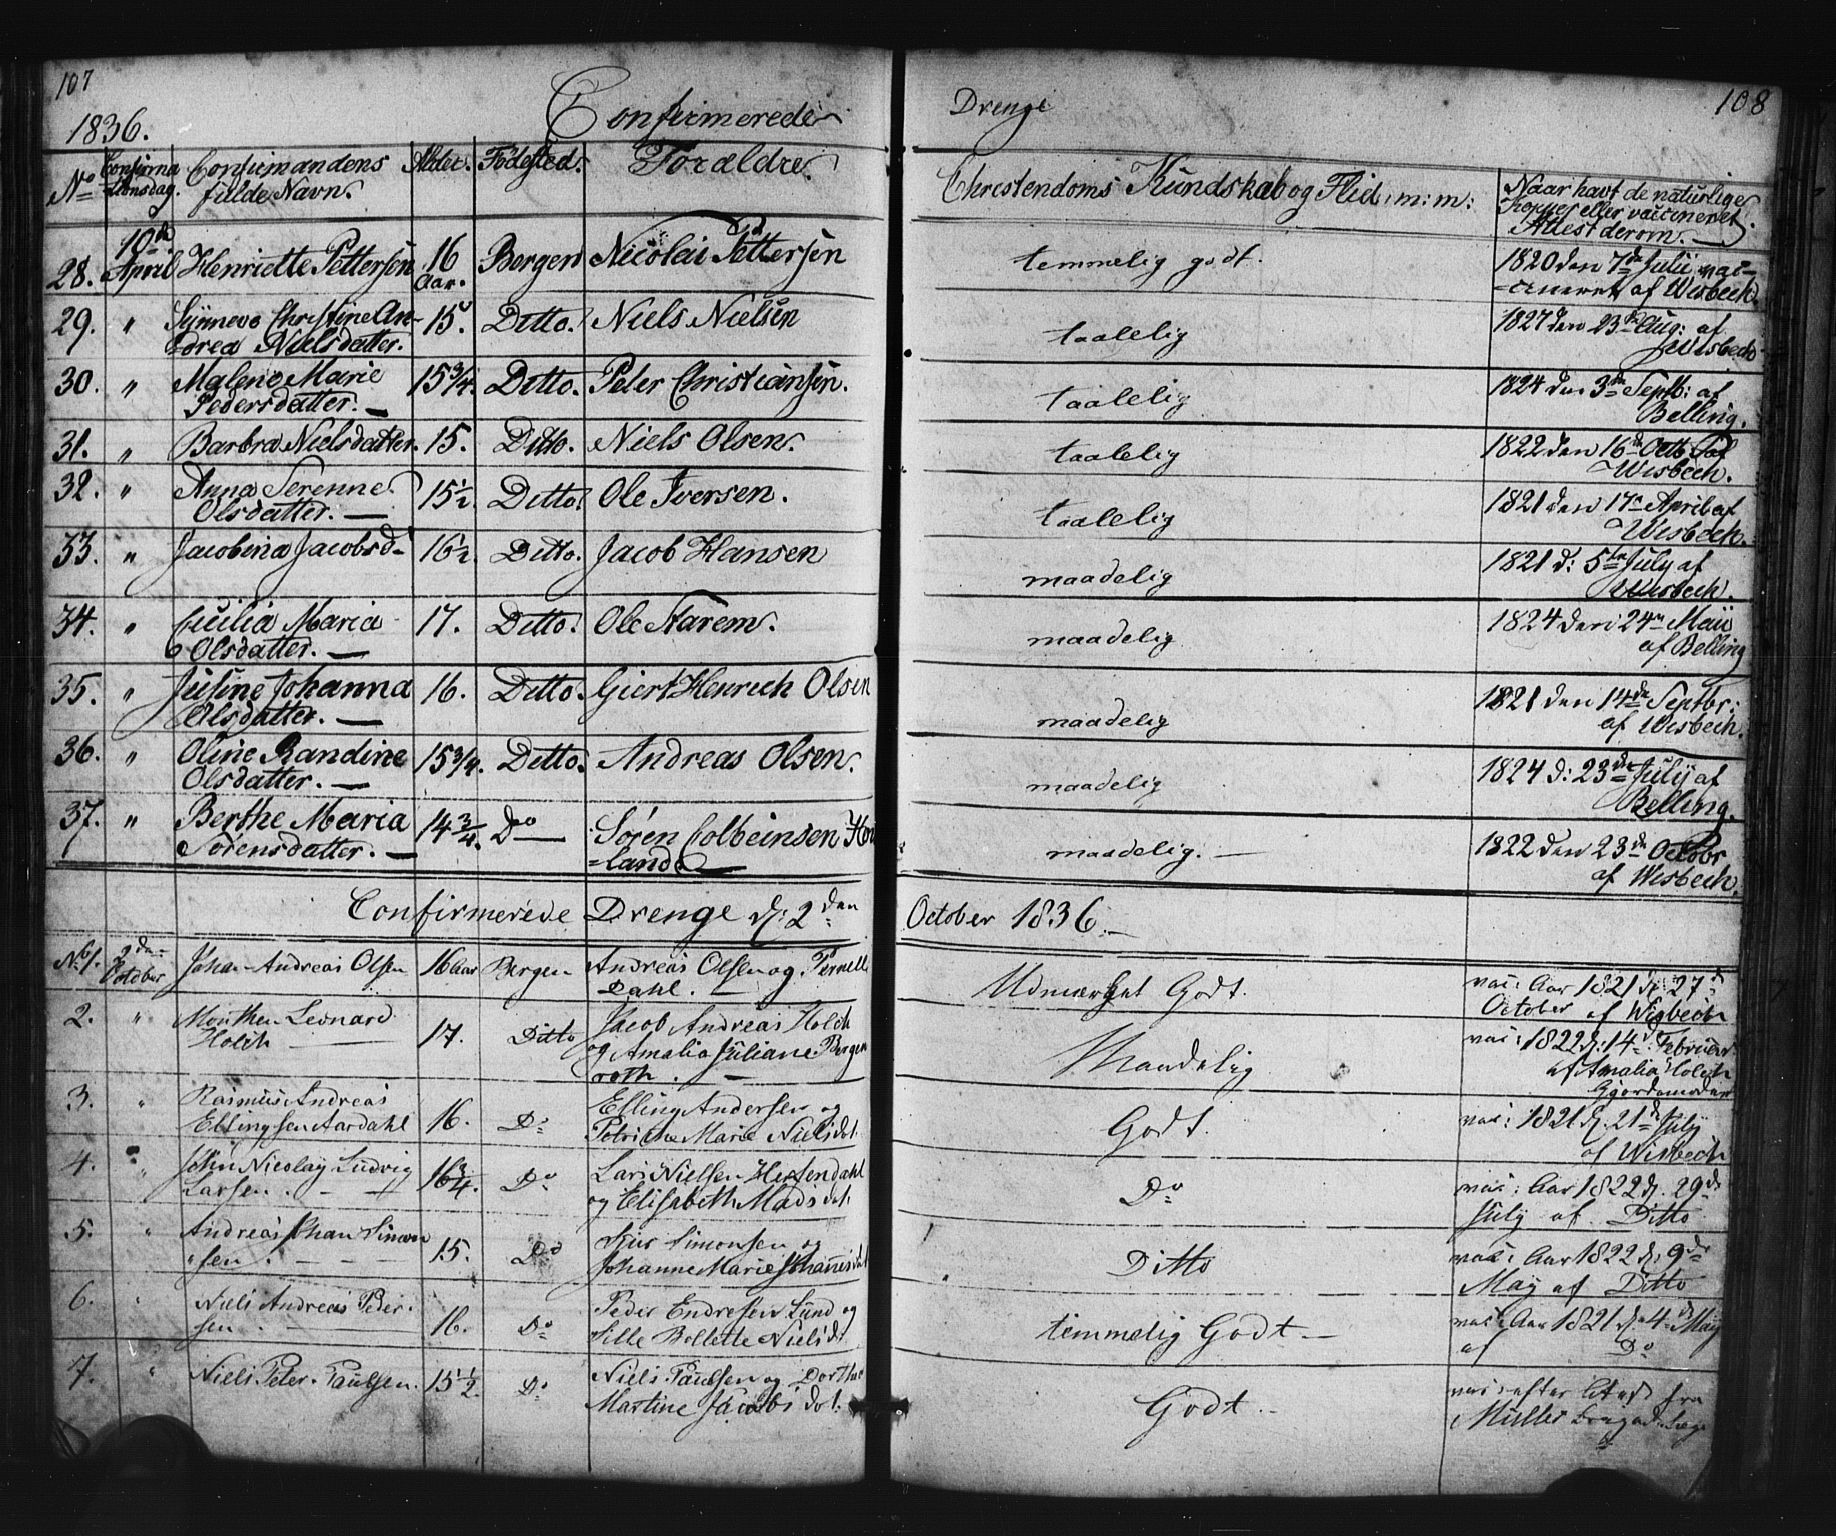 107
108
1836.
Confirmerede Drenge
No Confirmationsdag. Confirmandens fulde Navn. Alder. Fødested. Forældre. Christendoms Kundskab og Flid, m: m: Naar havt de naturlige Kopper eller vaccineret. Attest derom.
28. 10de April Henriette Pettersen 16 Aar. Bergen Nicolai Pettersen temmelig godt. 1820 den 7de Julii vac-
cineret af Wisbech.
29. " Synneve Christine An- 15. Ditto. Niels Nielsen taalelig 1827 den 23de Aug: af
drea Nielsdatter. Wisbech
30. " Malene Marie 15 3/4. Ditto. Peter Christiansen. taalelig 1824 den 3de Septb: af
Pedersdatter. Belling.
31. " Barbra Nielsdatter. 15. Ditto. Niels Olsen. taalelig 1822 den 16de Octb af
Wisbech.
32. " Anna Serenne 15 1/2. Ditto. Ole Iversen. taalelig 1821 den 17de April af
Olsdatter. Wisbech.
33. " Jacobina Jacobsd. 16 1/2. Ditto. Jacob Hansen maadelig 1821 d: 5te July af
Wisbech.
34. " Cecilia Maria 17. Ditto. Ole Starem. maadelig 1824 den 24de Maii
Olsdatter. af Belling
35. " Juline Johanna 16. Ditto. Giert Henrich Olsen maadelig 1821 den 14de Septbr:
Olsdatter. af Wisbech.
36. " Oline Randine 15 3/4. Ditto. Andreas Olsen. maadelig 1824 d: 23de July af
Olsdatter. Belling.
37. " Berthe Maria 14 3/4. Do Søren Colbeinsen Hou maadelig. 1822 den 23de Octobr
Sørensdatter. =land af Wisbech.
Confirmerede Drenge d: 2den October 1836.
No 1. 2den October Johan Andreas Olsen 16 Aar Bergen Andreas Olsen og Pernell Udmærket Godt. vac: Aar 1821 d. 27d
Dahl. October af Wisbech
2. " Mouthen Leonard 17. Ditto Jacob Andreas Holck Maadelig vac: 1822 d: 14d Februar
Holck og Amalia Juliane Bergen af Amalia Holck
roth. Gjordemoder
3. " Rasmus Andreas 16. Do Elling Andersen og Godt. vac: 1821 d. 21d July
Ellingsen Aardahl Petriche Marie Nielsdot. af Wisbech
4. " John Nicolay Ludvig 16 3/4. Do Lars Nielsen Hestendahl Do vac: Aar 1822 d. 29de
Larsen. og Elisabeth Madsdot. July af Ditto
5. " Andreas Johan Simon 15. Do Simonsen og Ditto vac: Aar 1822 d. 9de
sen. Johanne Marie Johannisdat May af Ditto
6. " Niels Andreas Peder- 16. Do Peder Endresen Lund og temmelig Godt. vac: Aar 1821 d. 4de May
sen. Sille Bollette Nielsdt af Do
7. " Niels Peter Paulsen. 15 1/2. Do Niels Paulsen og Dorthe Godt. vac: efter Attest fra
Martine Jacobsdot. Müller Brigade Læge